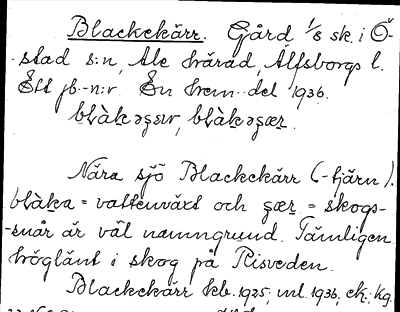 Blackekärr. Gård 1/8 sk. i Ö-
-stad s:n, Ale härad, Älfsborgs l.
Ett jb.-n:r. En hem.-del 1936.
blàkəʒæɪv, blàkəʒæṟ.
Nära sjö Blackekärr (-tjärn).
blàka = vattenväxt och ʒæṟ = skogs-
-snår är väl namngrund. Tämligen
höglänt i skog på Risveden.
Blackekärr hcb. 1925, ml. 1936, ek.; kg.